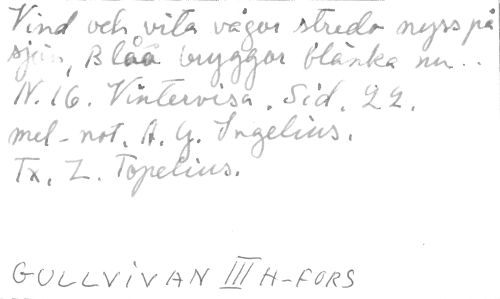 Vind och vita vågor stredo nyss på
sjön, Blåa bryggor blänka nu..
N. 16. Vintervisa. Sid. 22.
mel-not. A. G. Ingelius.
Tx. Z. Topelius.
GULLVIVAN III H-FORS